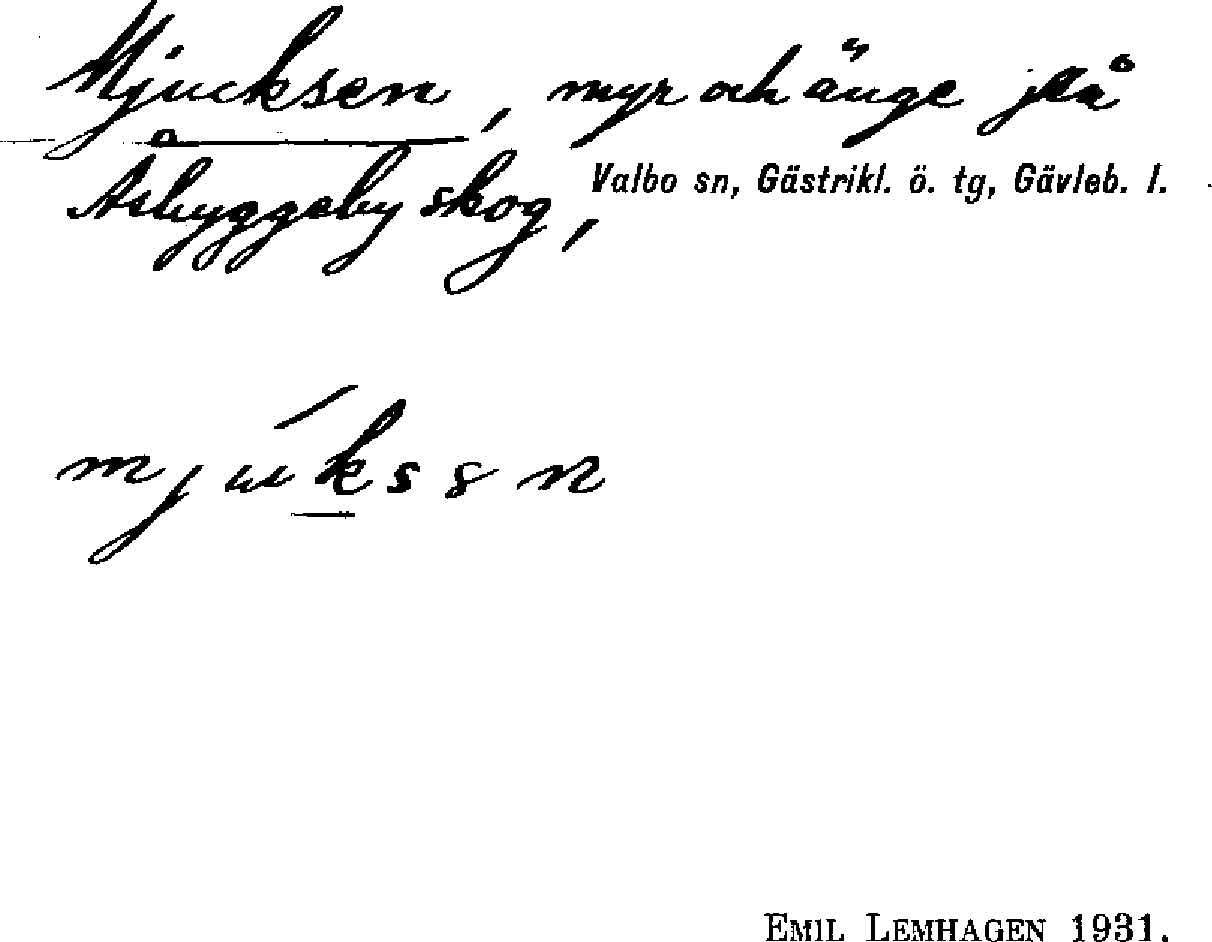 Mjucksen, myr och änge på
Åsbyggeby skog, Valbo sn, Gästrikl. ö. tg, Gävleb. l.
EMIL LEMHAGEN 1931.